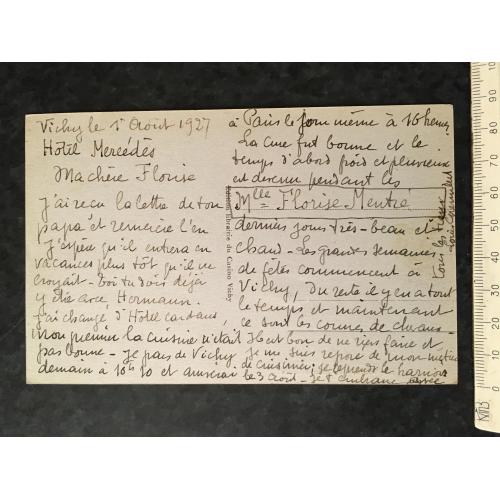 Vichy le 1er Août 1927
Hôtel Mercédès
Ma chère Florise
J'ai reçu la lettre de ton
papa et remercie l'en
J'espère qu'il entrera en
vacances plus tôt qu'il ne
croyait - toi tu dois déjà
y être avec Hermann.
J'ai changé d'Hôtel car dans
mon premier la cuisine n'était
pas bonne - Je pars de Vichy
demain à 10h 10 et
à Paris le jour même à 16 heures.
La cure fut bonne et le
temps d'abord froid et pluvieux
est devenu pendant les
Mlle Florise Mentré
derniers jours très-beau et
chaud - Les grandes semaines
de fêtes commencent à
Vichy, Du reste il y en a tout
le temps et maintenant
ce sont les courses de chevaux -
Il est bon de ne rien faire et
je me suis reposé de mon métier
de cuisinier; je reprends le harnois
le 3 Août - Je t'embrasse
tous les
Librairie du Casino Vichy
10 20 30 40 50 60 70 80 90